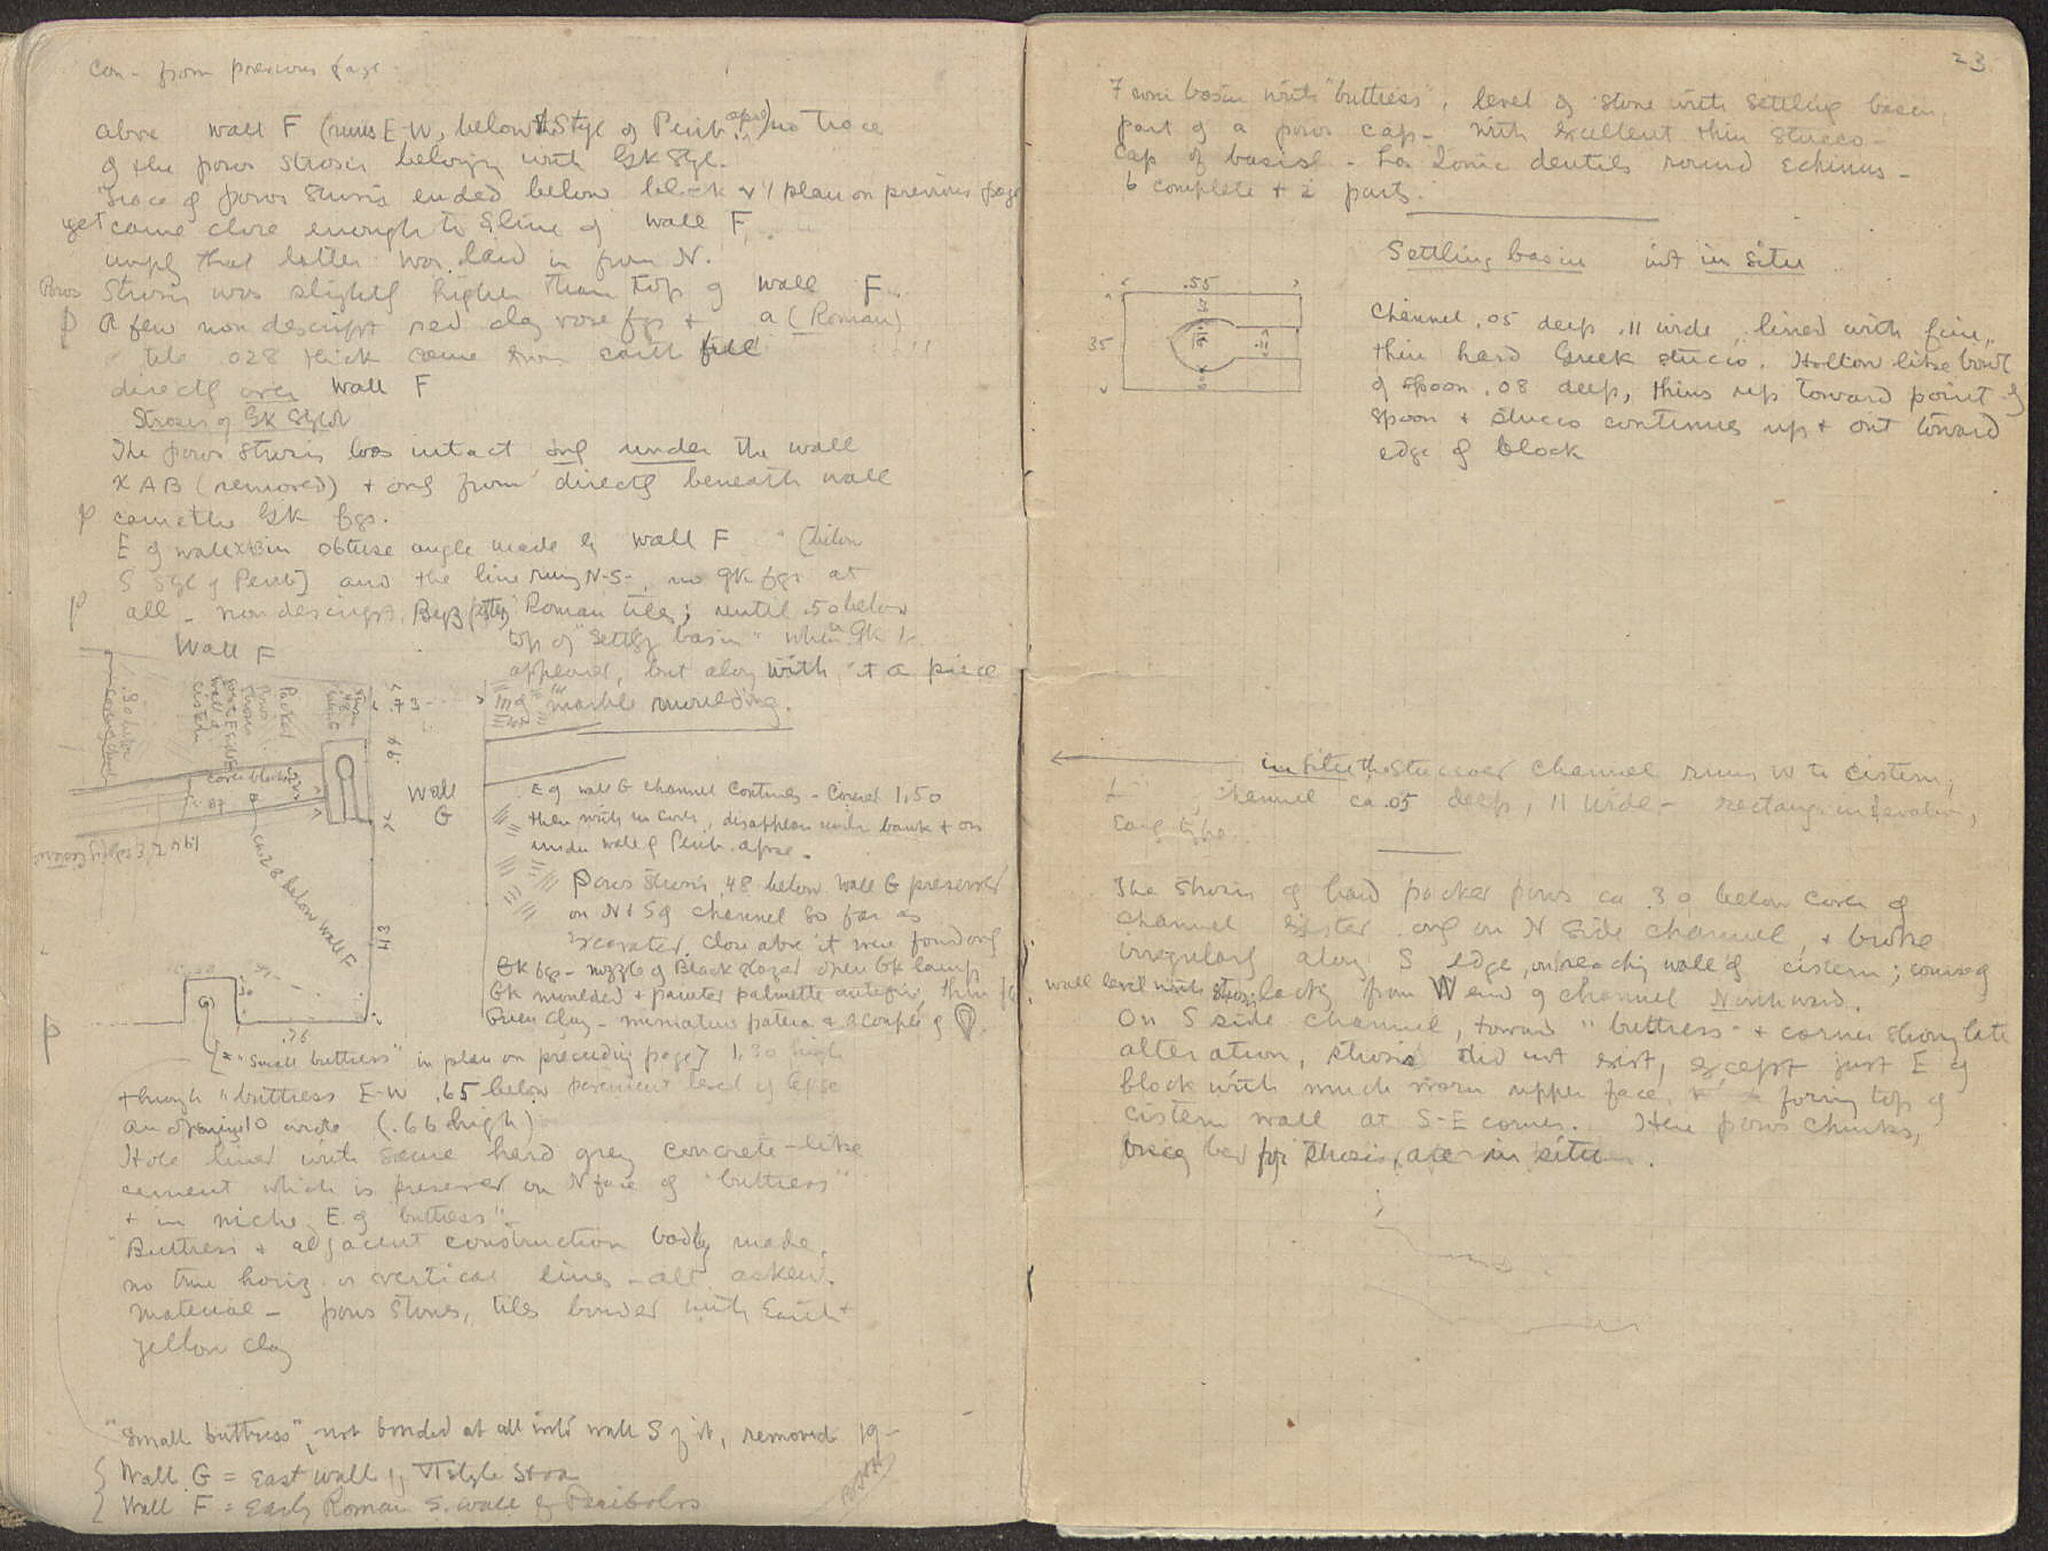 Con- from previous page -
above wall F (runs E-W, below Styl of Perib. apse) no trace
of the poros strosis belonging with Gk Styl.
Trace of poros strosis ended below block plan on previous page
yet came close enough to S line of wall F
imply that latter was laid in from N.
Poros Strosis was slightly higher than top of wall F
p A few nondescript red clay vase fgs + a (Roman)
tile .028 thick came from earth fill
directly over wall F
Strosis of Gk Stylob
The poros strosis was intact only under the wall
X A B (removed) + only from directly beneath wall
p came the Gk fgs.
E of wall XAB in obtuse angle made by wall F (below
S Styl of Perib] and the line runng N-S-, no gk fgs at
p all - nondescript, Byz pottery, Roman tiles; until .50 below
top of "settlg basin" when Gk
appeared, but along with it a piece
of marble moulding.
Wall F
.30 below
Packed
poros
strosis
.73
.66
cover blocks
.87
Wall
G
1.42 E edge of cistern
ca. 28 below wall F
.43
E of wall G channel continues - covered 1.50
then with no cover, disappears under bank + on
under wall of Perib. apse.
Poros strosis .48 below wall G preserved
on N + S of channel so far as
excavated. Close above it were found only
Gk fgs - nozzle of Black glazed open Gk lamp
Gk moulded + painted palmette antefix, thin
Green clay - miniature patera + a couple of
p
G
.30
.76
* "Small buttress" in plan on preceding page] 1.30 high
through "buttress E-W .65 below pavement level of
an opening 10 wide (.66 high)
Hole lined with same hard grey concrete-like
cement which is preserved on N face of "buttress"
+ in niche E. of "buttress".
Buttress + adjacent construction badly made,
no true horiz. or vertical lines - all askew.
Material - poros stones, tiles bonded with Earth +
yellow clay
"Small buttress" not bonded at all into wall S of it, removed 19-
Wall G = East wall of Πstyle Stoa
Wall F = Early Roman S. wall of Peribolos
23
From basin with "buttress", level of stone with settling basin,
part of a poros cap - with excellent thin stucco -
Cap of basis? - has Ionic dentils round echinus -
6 complete + 2 parts.
Settling basin not in situ
.55
35
.11
Channel .05 deep .11 wide, lined with fine,
thin hard Greek stucco. Hollow like bowl
of spoon .08 deep, thins up toward point of
spoon + stucco continues up + out toward
edge of block
in situ the stuccoed channel runs W to cistern,
channel ca .05 deep, 11 wide - rectang. in elevation,
Early type.
The strosis of hard packed poros ca .30 below cover of
channel existed only on N side channel, + broke
irregularly along S edge, on reaching wall of cistern; course of
wall level with strosis lacking from W end of channel Northward.
On S side channel, toward "buttress" + corner showing late
alteration, strosis did not exist, except just E of
block with much worn upper face, formg top of
cistern wall at S-E corner. Here poros chunks,
being bed for strosis, are in situ.